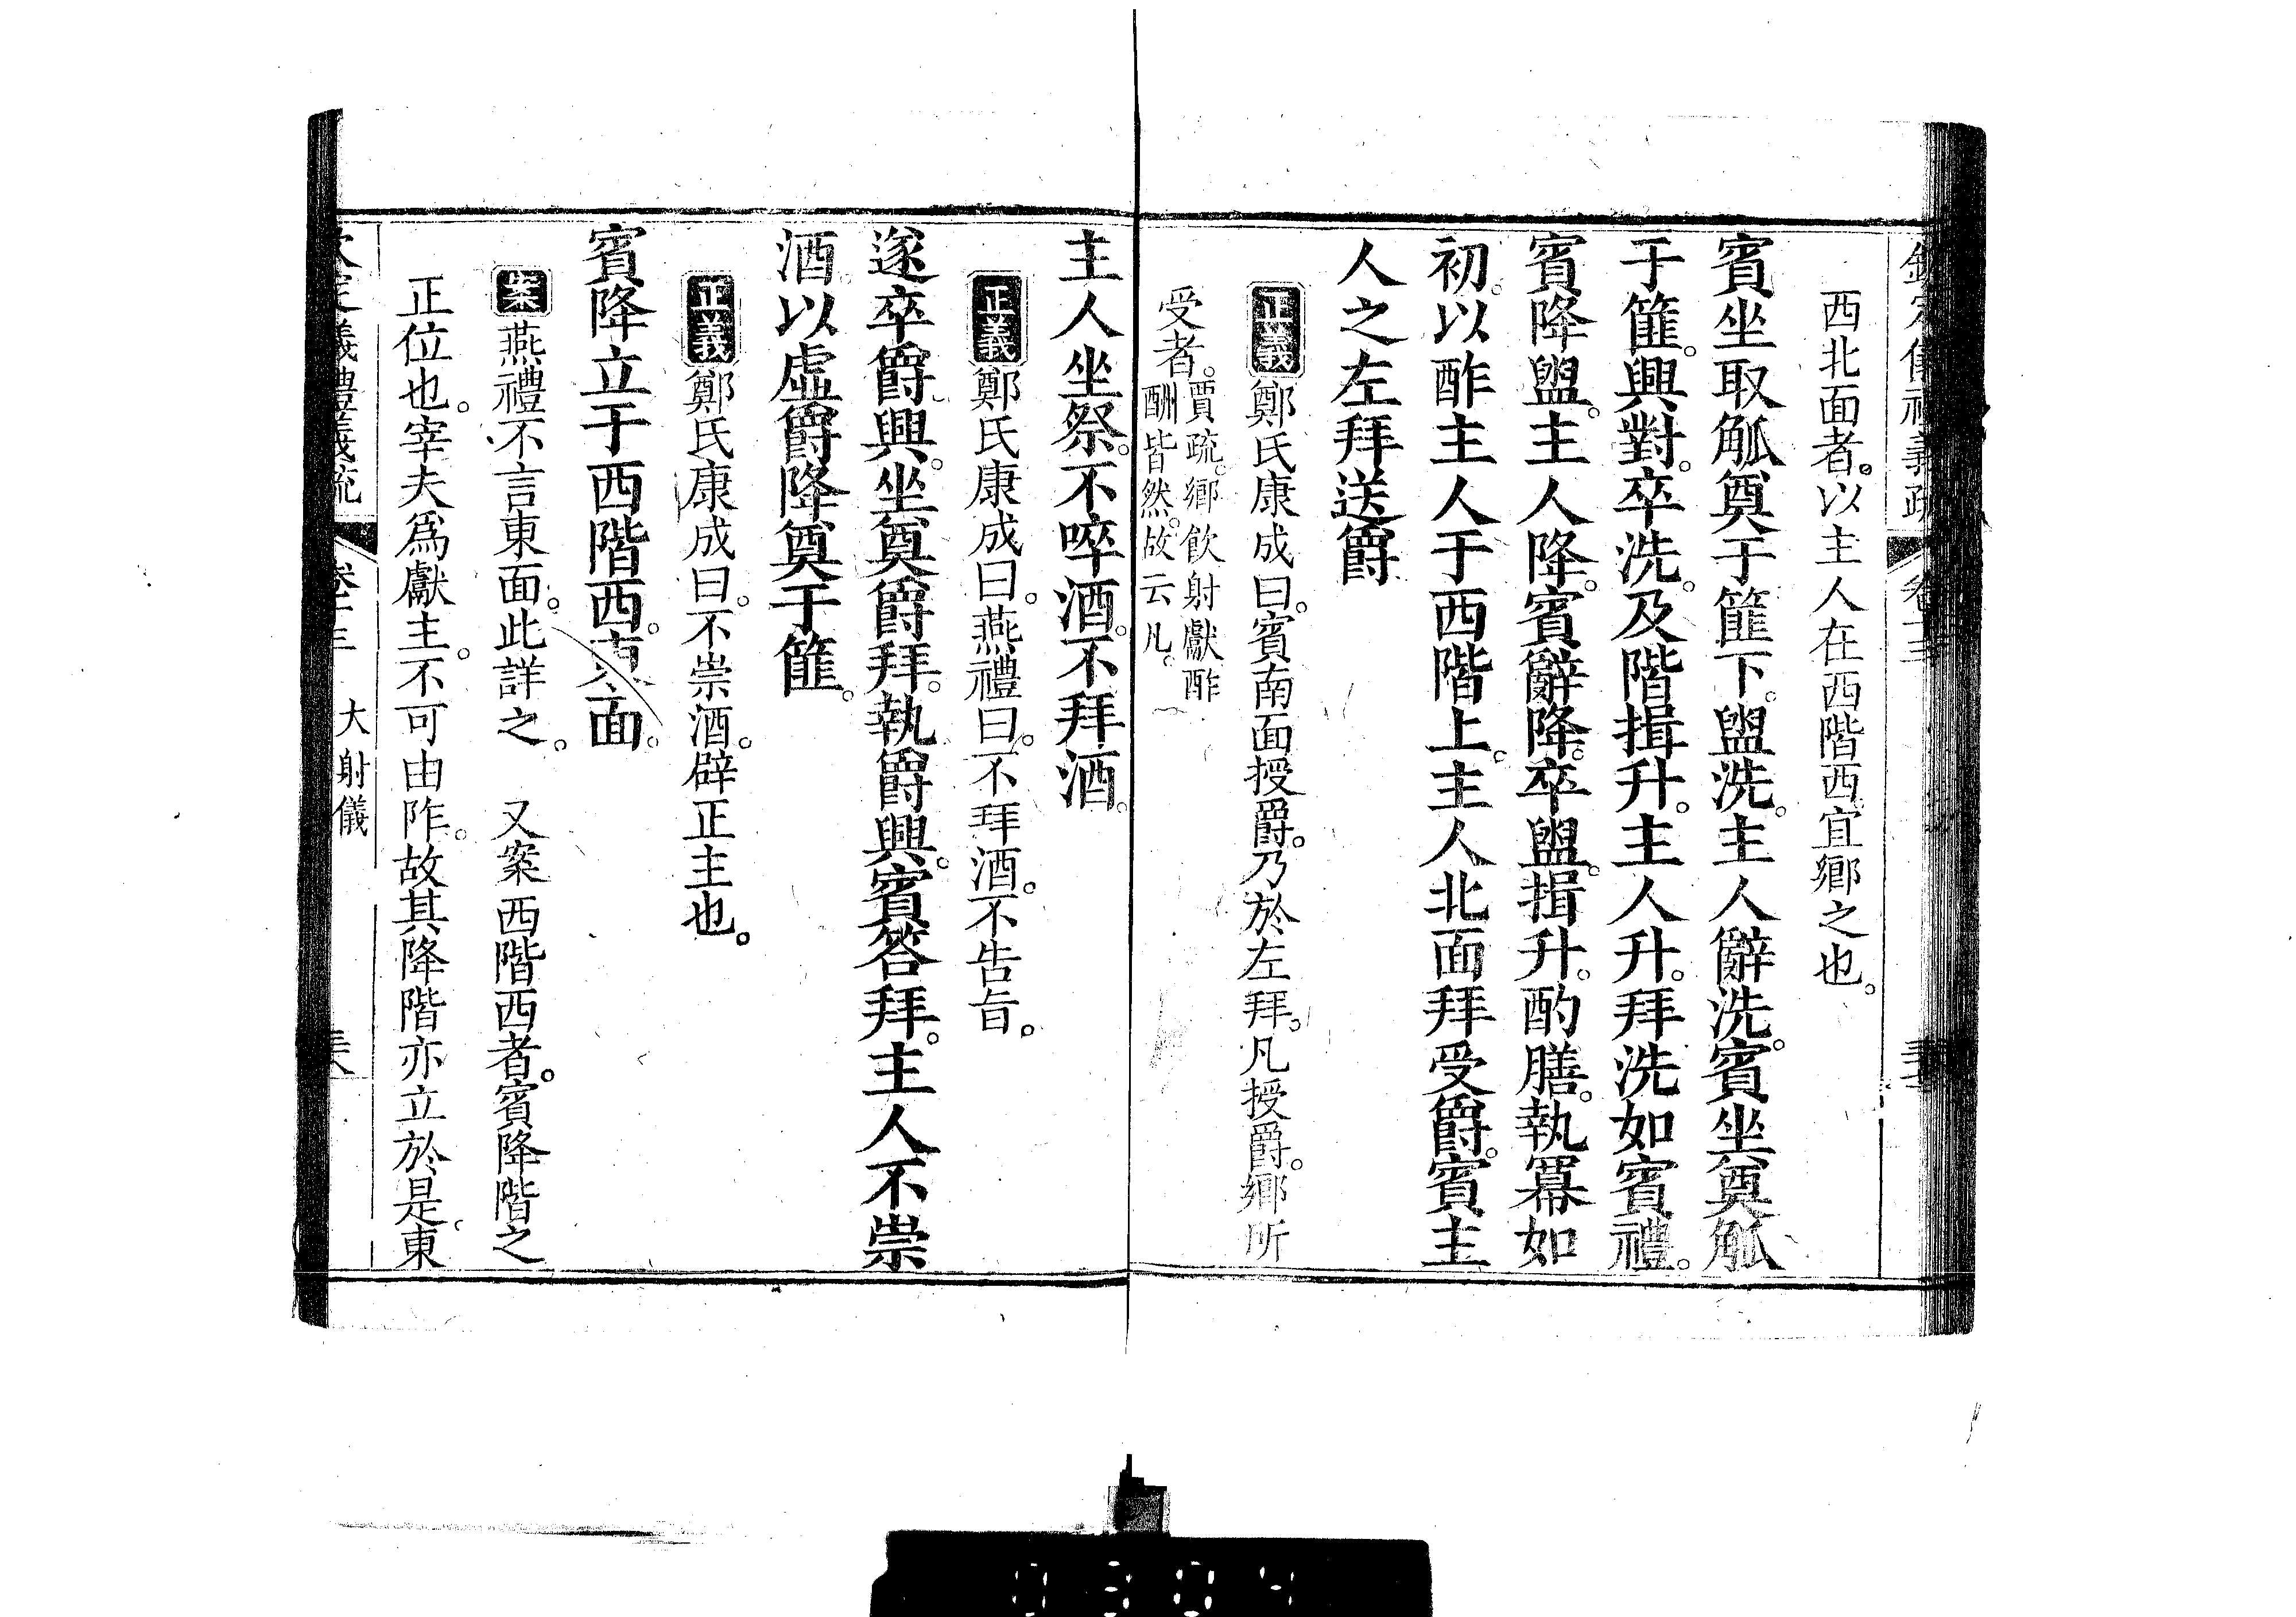 西北面者。以主人在西階西宜鄉之也。
賓坐取觚奠于篚下。盥洗。主人辭洗。賓坐奠觚
于篚。興對。卒洗。及階揖升。主人升。拜洗如賓禮。
賓降盥。主人降。賓辭降。卒盥。揖升。酌膳。執冪如
初。以酢主人于西階上。主人北面拜受爵。賓主
人之左拜送爵
正義鄭氏康成曰。賓南面授爵。乃於左拜。凡授爵。鄉所
受者。賈疏。鄉飲射獻酢
酬皆然。故云凡。
主人坐祭。不啐酒。不拜酒。
正義鄭氏康成曰。燕禮曰。不拜酒。不告旨。
遂卒爵興。坐奠爵拜。執爵興。賓答拜。主人不崇
酒。以虛爵降奠于篚。
正義鄭氏康成曰。不崇酒。辟正主也。
賓降立于西階西。東面。
案燕禮不言東面。此詳之。 又案西階西者。賓降階之
正位也。宰夫爲獻主。不可由阼。故其降階亦立於是。東
欽定儀禮義疏 卷十三 大射儀